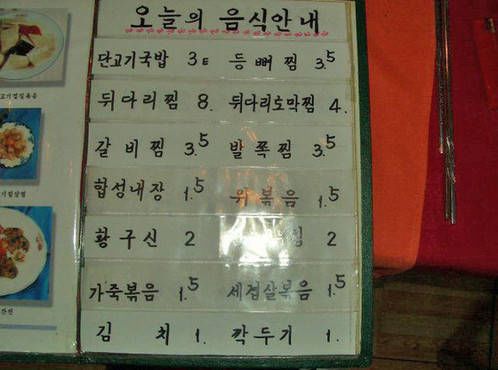 오늘의 음식안내
단고기국밥 3E 등뼈찜 3.5
뒤다리찜 8. 뒤다리토막찜 4.
갈비찜 3.5 발쪽찜 3.5
합성내장 1.5 위볶음 1.5
황구신 2 찜 2
가죽볶음 1.5 세겹살볶음 1.5
김치 1. 깍두기 1.